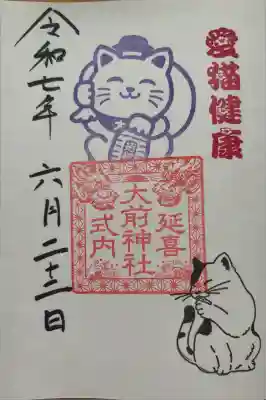 愛猫健康
延喜
大前神社
式内
令和七年
六月二十二日